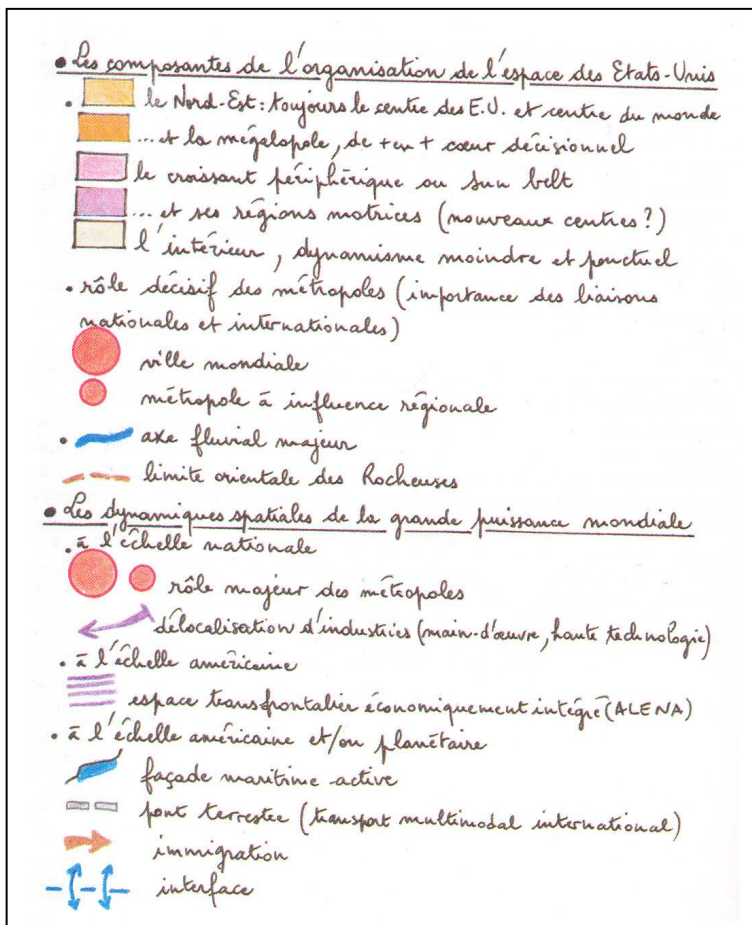 • Les composantes de l'organisation de l'espace des Etats-Unis
. le Nord-Est: toujours le centre des E.U. et centre du monde
... et la mégalopole, de + en + cœur décisionnel
le croissant périphérique ou Sun belt
... et ses régions motrices (nouveaux centres?)
l'intérieur, dynamisme moindre et ponctuel
. rôle décisif des métropoles (importance des liaisons
nationales et internationales)
ville mondiale
métropole à influence régionale
. axe fluvial majeur
limite orientale des Rocheuses
• Les dynamiques spatiales de la grande puissance mondiale
. à l'échelle nationale
rôle majeur des métropoles
délocalisation d'industries (main-d'œuvre, haute technologie)
. à l'échelle américaine
espace transfrontalier économiquement intégré (ALENA)
. à l'échelle américaine et/ou planétaire
façade maritime active
pont terrestre (transport multimodal international)
immigration
interface